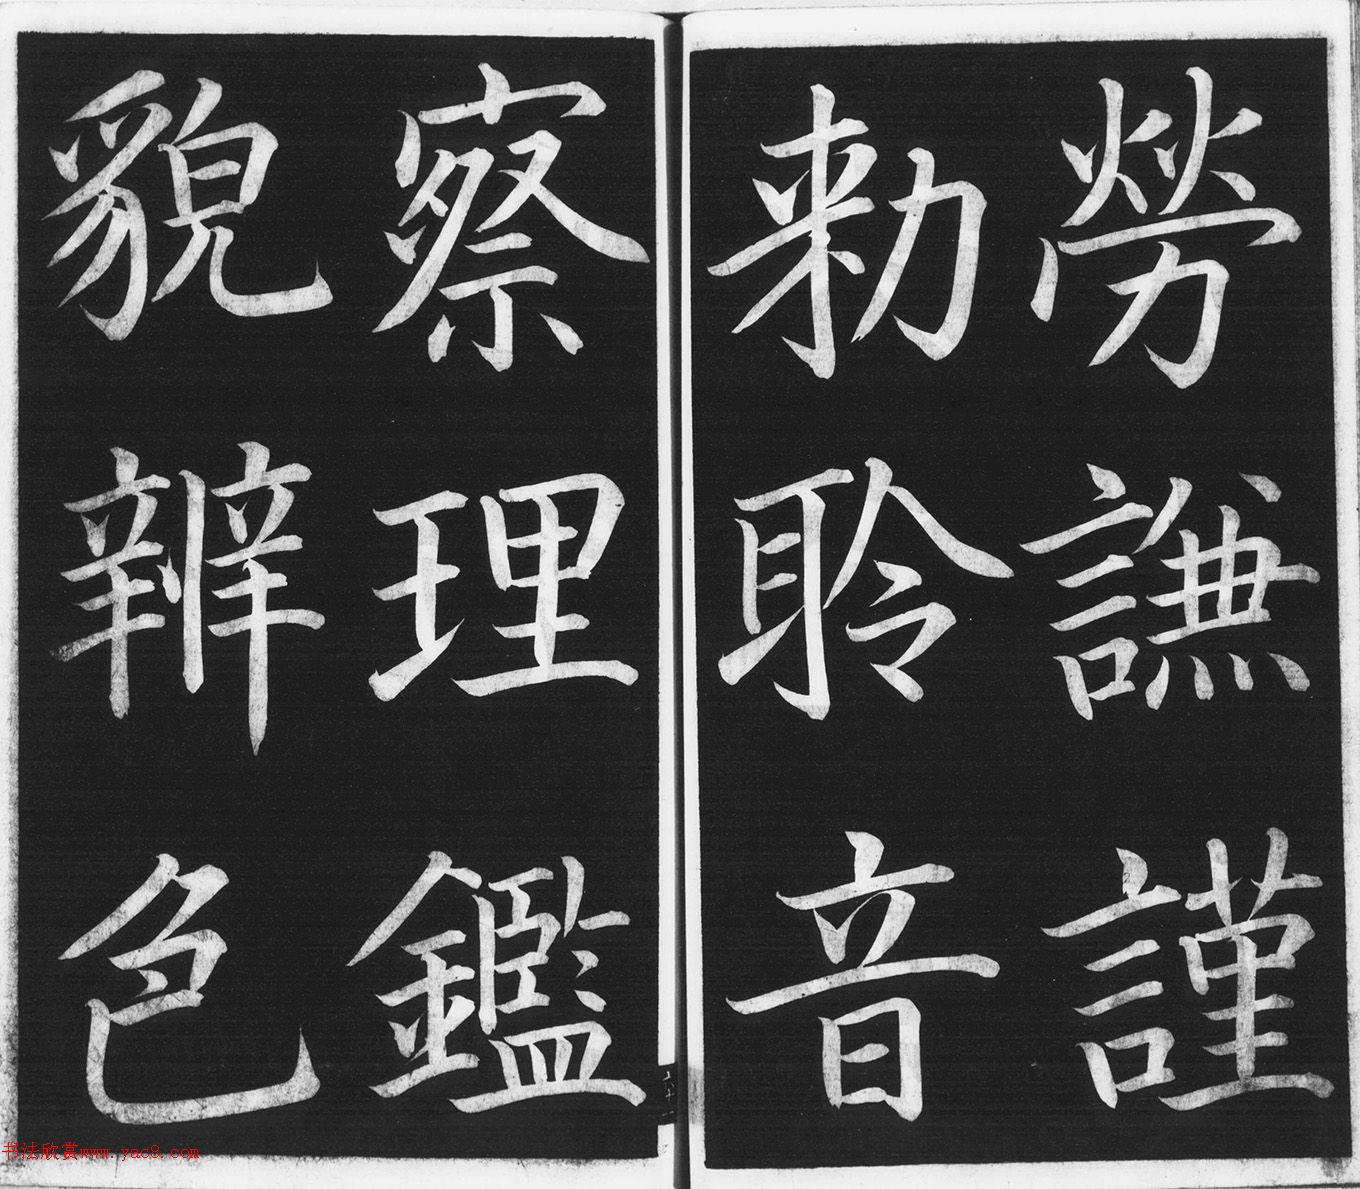 勞謙謹
勅聆音
察理鑑
貌辨色
六十二
书法欣赏www.yac8.com